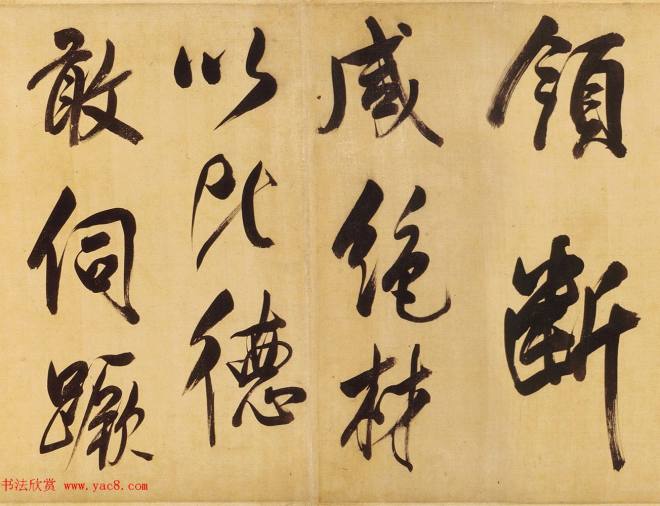 領斷
咸絕材
以比德
敢伺蹶
书法欣赏 www.yac8.com